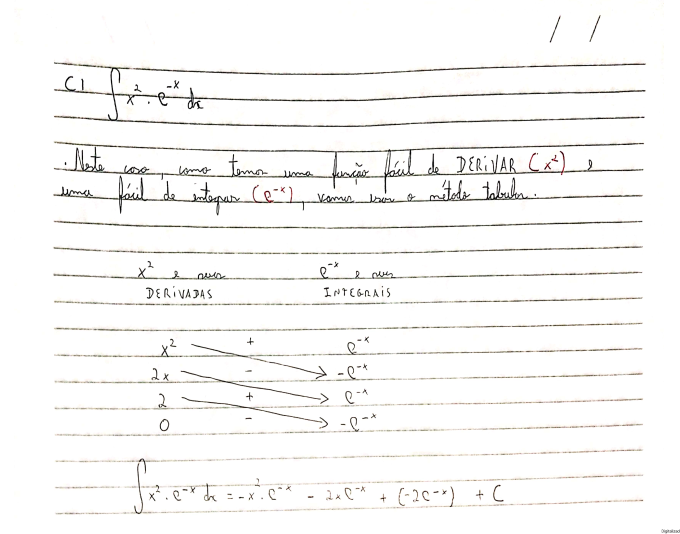 / /
C1 ∫ x² · e⁻ˣ dx
. Neste caso, como temos uma função fácil de DERIVAR (x²) e
uma fácil de integrar (e⁻ˣ), vamos usar o método tabular.
x² e suas e⁻ˣ e suas
DERIVADAS INTEGRAIS
x² + e⁻ˣ
2x - -e⁻ˣ
2 + e⁻ˣ
0 - -e⁻ˣ
∫ x² · e⁻ˣ dx = -x² · e⁻ˣ - 2xe⁻ˣ + (-2e⁻ˣ) + C
Digitalizad